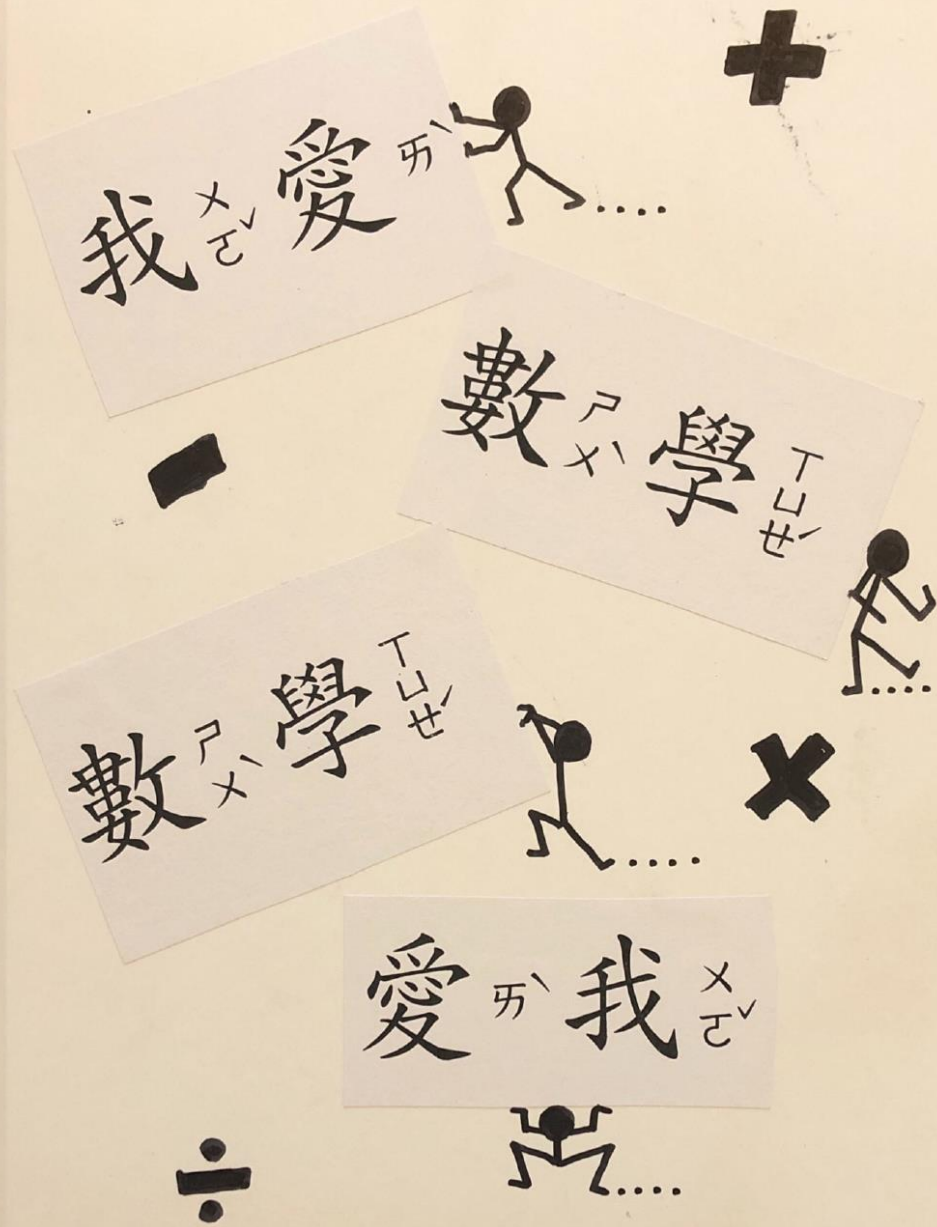 我ㄨㄛˇ愛ㄞˋ
數ㄕㄨˋ學ㄒㄩㄝˊ
數ㄕㄨˋ學ㄒㄩㄝˊ
愛ㄞˋ我ㄨㄛˇ